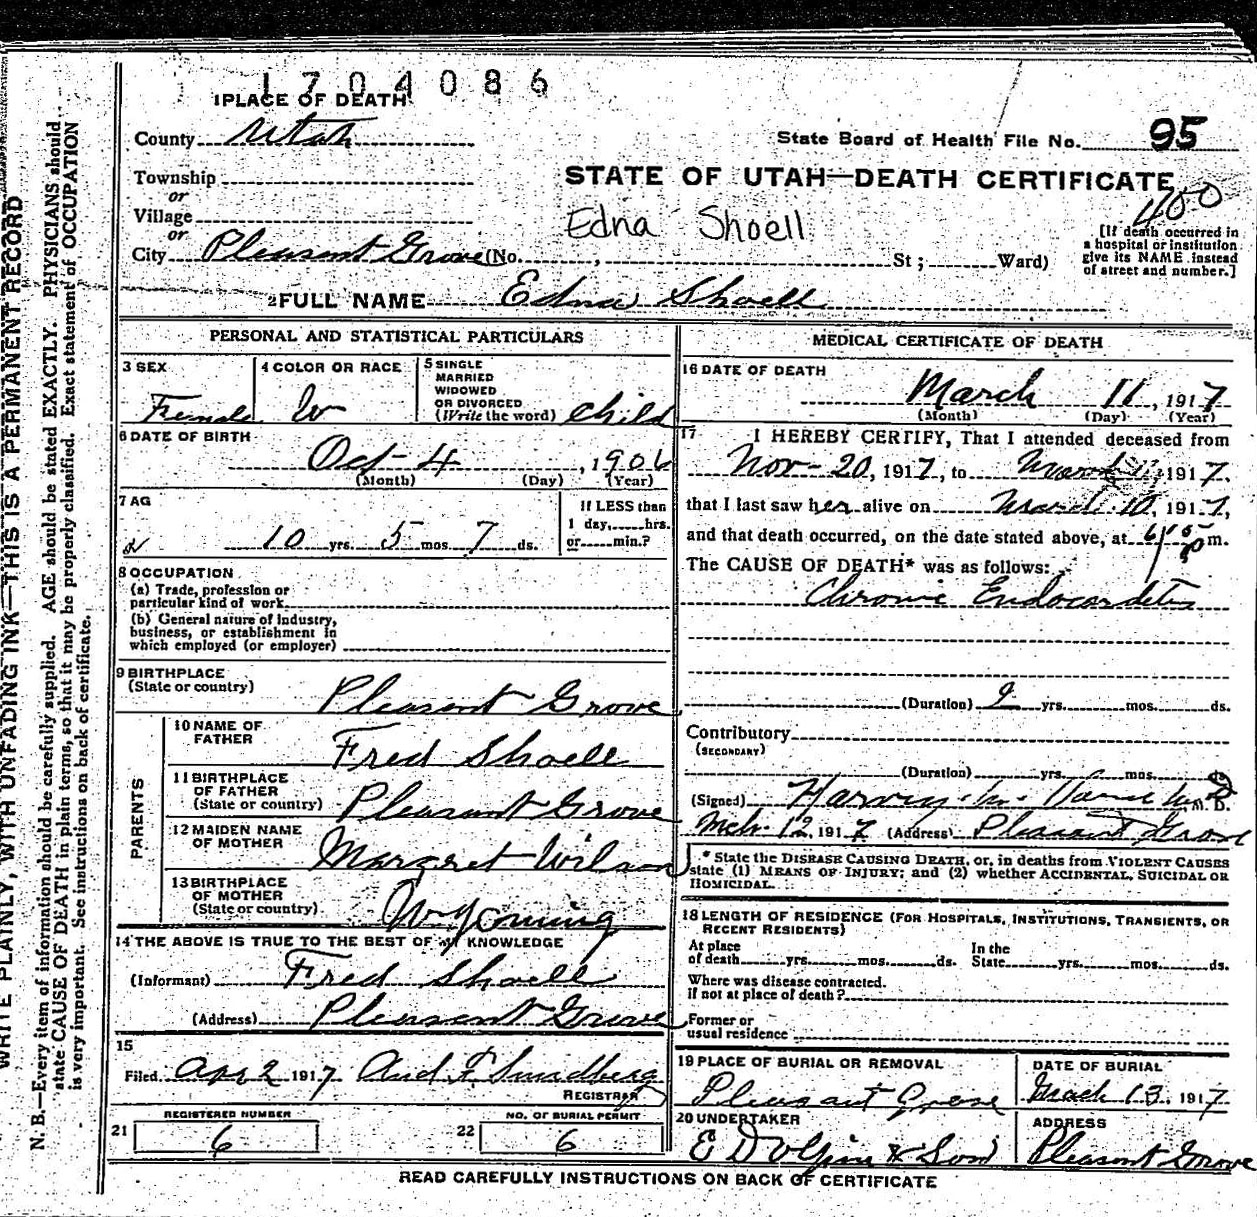 1704086
1 PLACE OF DEATH
County Utah
State Board of Health File No. 95
Township
or
STATE OF UTAH—DEATH CERTIFICATE
400
Village
or
Edna Shoell
City Pleasant Grove (No. , St ; Ward)
[If death occurred in
a hospital or institution
give its NAME instead
of street and number.]
2 FULL NAME Edna Shoell
PERSONAL AND STATISTICAL PARTICULARS
3 SEX
Female
4 COLOR OR RACE
W
5 SINGLE
MARRIED
WIDOWED
OR DIVORCED
(Write the word) Child
6 DATE OF BIRTH
Oct 4 , 1906
(Month) (Day) (Year)
7 AG
10 yrs. 5 mos 7 ds.
If LESS than
1 day, hrs.
or min.?
8 OCCUPATION
(a) Trade, profession or
particular kind of work
(b) General nature of industry,
business, or establishment in
which employed (or employer)
9 BIRTHPLACE
(State or country) Pleasant Grove
PARENTS
10 NAME OF
FATHER Fred Shoell
11 BIRTHPLACE
OF FATHER
(State or country) Pleasant Grove
12 MAIDEN NAME
OF MOTHER Margret Wilson
13 BIRTHPLACE
OF MOTHER
(State or country) Wyoming
14 THE ABOVE IS TRUE TO THE BEST OF MY KNOWLEDGE
(Informant) Fred Shoell
(Address) Pleasant Grove
15
Filed Apr 2 1917 Aud F. Sundberg
REGISTRAR
REGISTERED NUMBER
21 6
NO. OF BURIAL PERMIT
22 6
MEDICAL CERTIFICATE OF DEATH
16 DATE OF DEATH
March 11 , 1917
(Month) (Day) (Year)
17 I HEREBY CERTIFY, That I attended deceased from
Nov- 20, 1917, to March 1917,
that I last saw her alive on March 10, 1917,
and that death occurred, on the date stated above, at m.
The CAUSE OF DEATH* was as follows:
Chronic Endocarditis
(Duration) yrs. mos. ds.
Contributory
(SECONDARY)
(Duration) yrs. mos. ds
(Signed) Harvey M. D.
Mch. 12, 1917 (Address) Pleasant Grove
* State the DISEASE CAUSING DEATH, or, in deaths from VIOLENT CAUSES
state (1) MEANS OF INJURY; and (2) whether ACCIDENTAL, SUICIDAL OR
HOMICIDAL.
18 LENGTH OF RESIDENCE (FOR HOSPITALS, INSTITUTIONS, TRANSIENTS, OR
RECENT RESIDENTS)
At place
of death yrs. mos. ds.
In the
State yrs. mos. ds.
Where was disease contracted.
if not at place of death?
Former or
usual residence
19 PLACE OF BURIAL OR REMOVAL
Pleasant Grove
DATE OF BURIAL
March 13, 1917
20 UNDERTAKER
E D Olpin & Son
ADDRESS
Pleasant Grove
READ CAREFULLY INSTRUCTIONS ON BACK OF CERTIFICATE
WRITE PLAINLY, WITH UNFADING INK—THIS IS A PERMANENT RECORD
N. B.—Every item of information should be carefully supplied. AGE should be stated EXACTLY. PHYSICIANS should
state CAUSE OF DEATH in plain terms, so that it may be properly classified. Exact statement of OCCUPATION
is very important. See instructions on back of certificate.